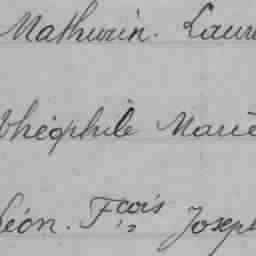 Mathurin. Laur
Théophile Marie
Léon. Fçois Joseph